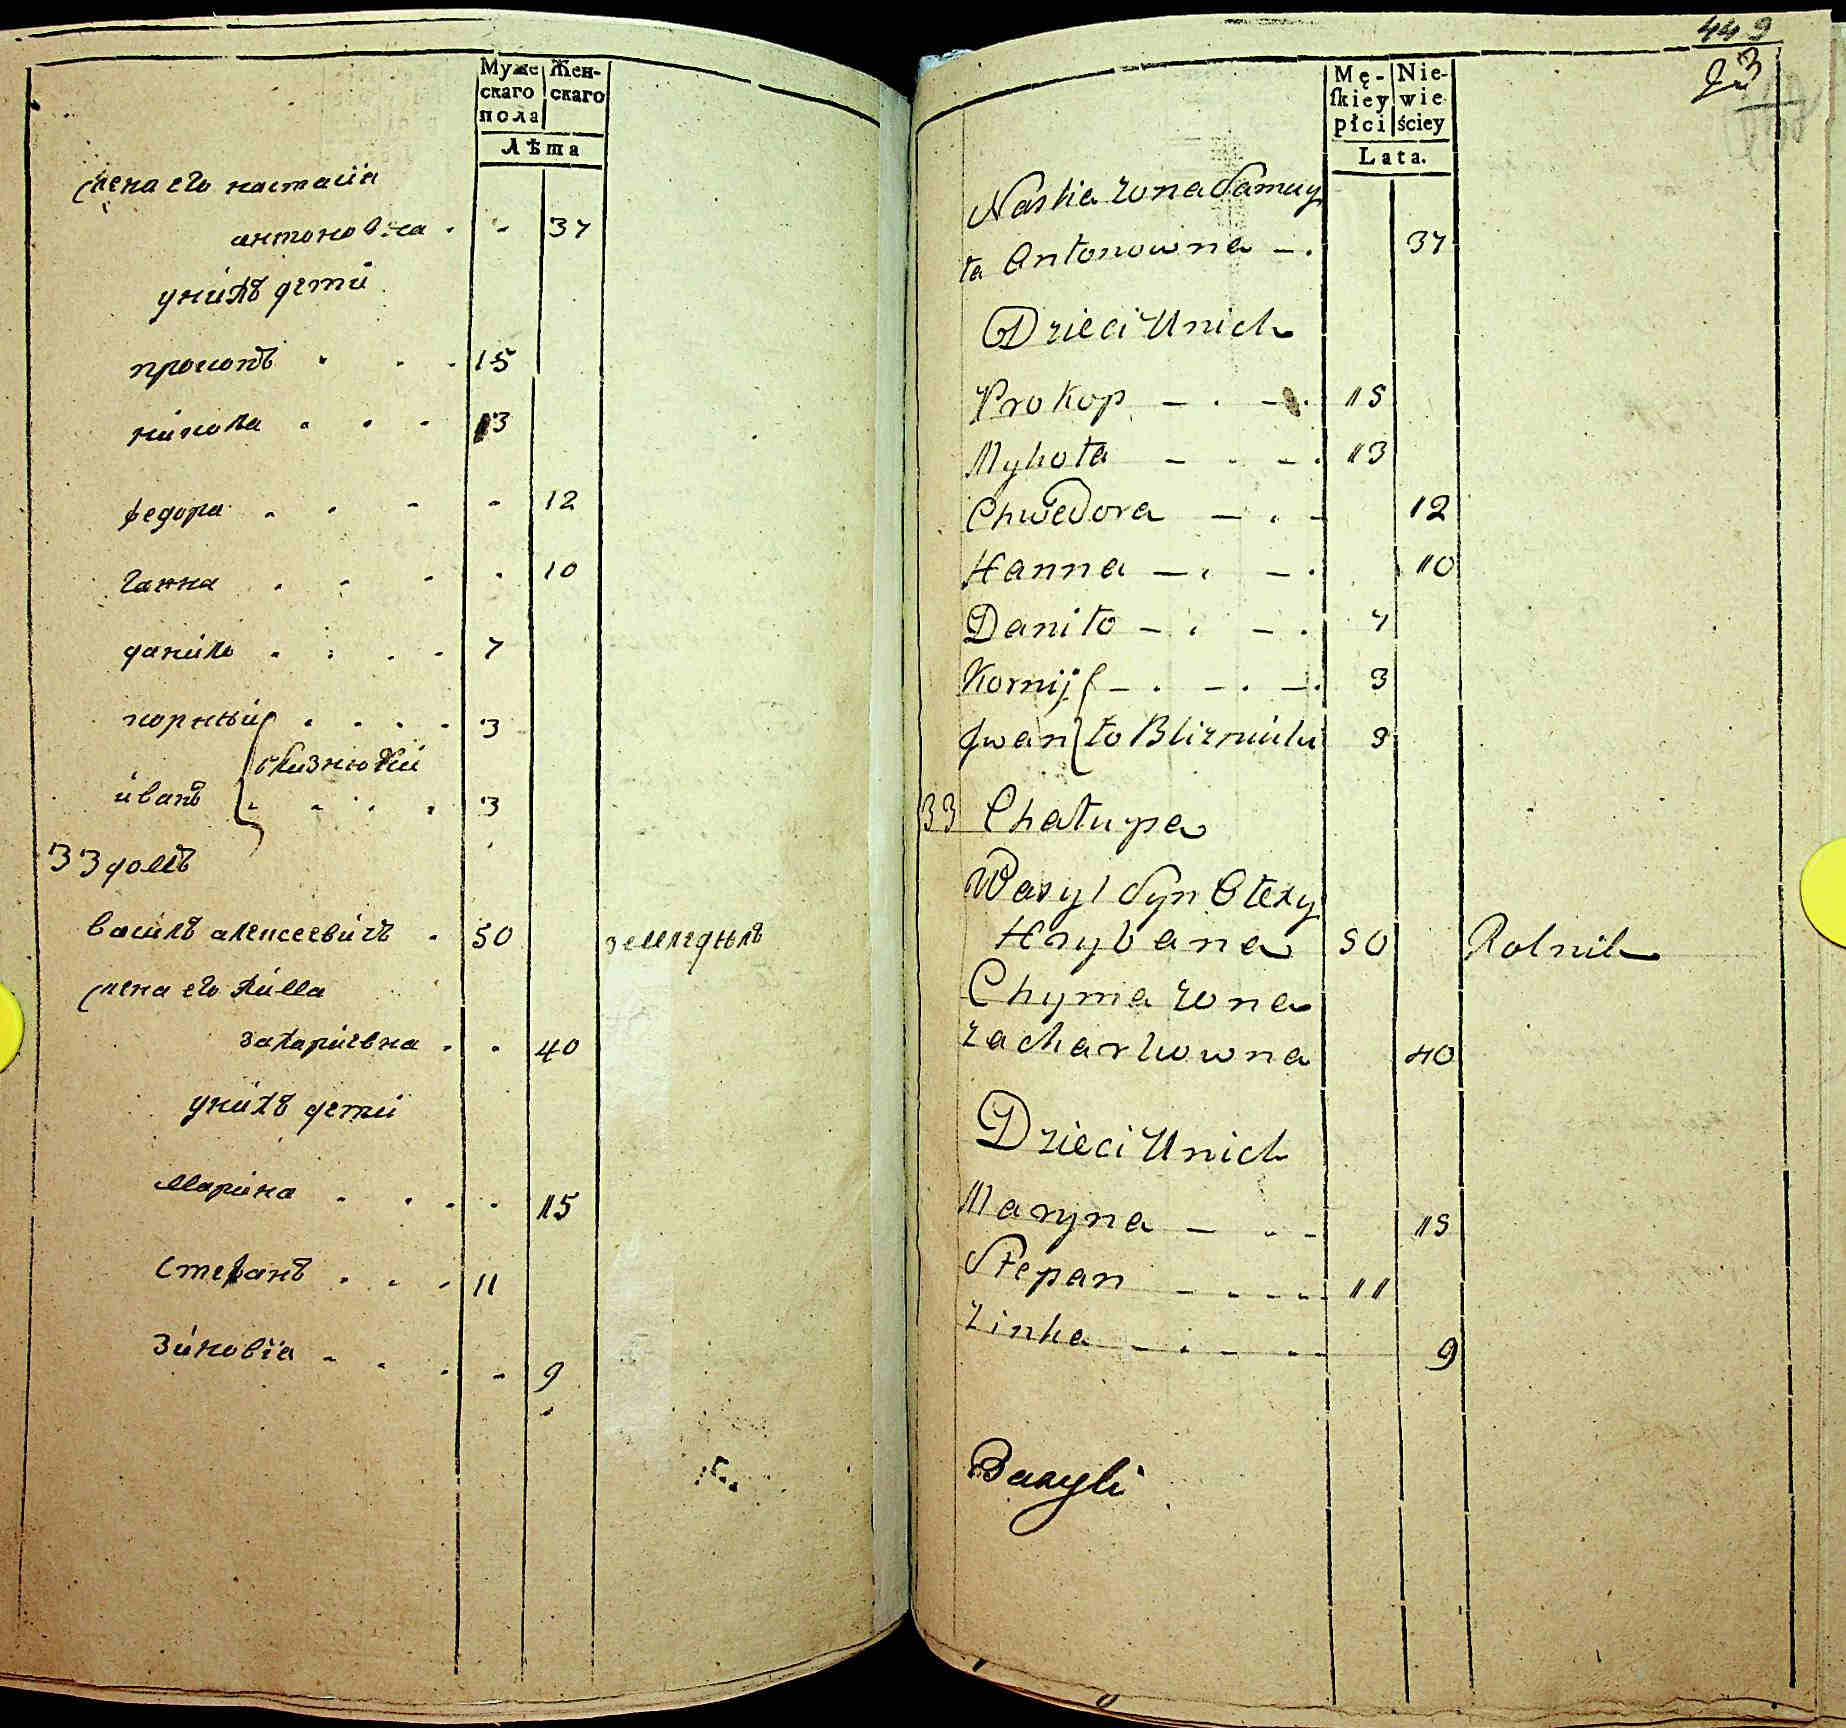 Муже Жен-
скаго скаго
пола
Лѣта
жена его настасїа
антоновна . . 37
унихъ дети
прокопъ . . . 15
никола . . . 13
федора . . . . 12
ганна . . . . 10
данило . . . . 7
корнѣй . . . . 3
близнюки
иванъ . . . . 3
33 домъ
василь алексеевичъ . 50 земледѣлъ
жена его хима
захарiевна . . 40
унихъ дети
марина . . . . 15
стефанъ . . . 11
зиновїа . . . . 9
449
23
Mę- Nie-
ſkiey wie-
płci ściey
Lata.
Nastia zona Samuy
ła Antonowna — . 37
Dzieci Unich
Prokop — . — . 15
Mykoła — . — . 13
Chwedora — . — 12
Hanna — . — . 10
Daniło — . — . 7
Kornij — . — . — . 3
Jwan to Blizniuki 3
33 Chałupa
Wasyl Syn Ołexy
Hrybana 50 Rolnik
Chyma zona
zacharkowna 40
Dzieci Unich
Maryna — . . 15
Stepan . . . . 11
Zinka — . — . . 9
Bazyli